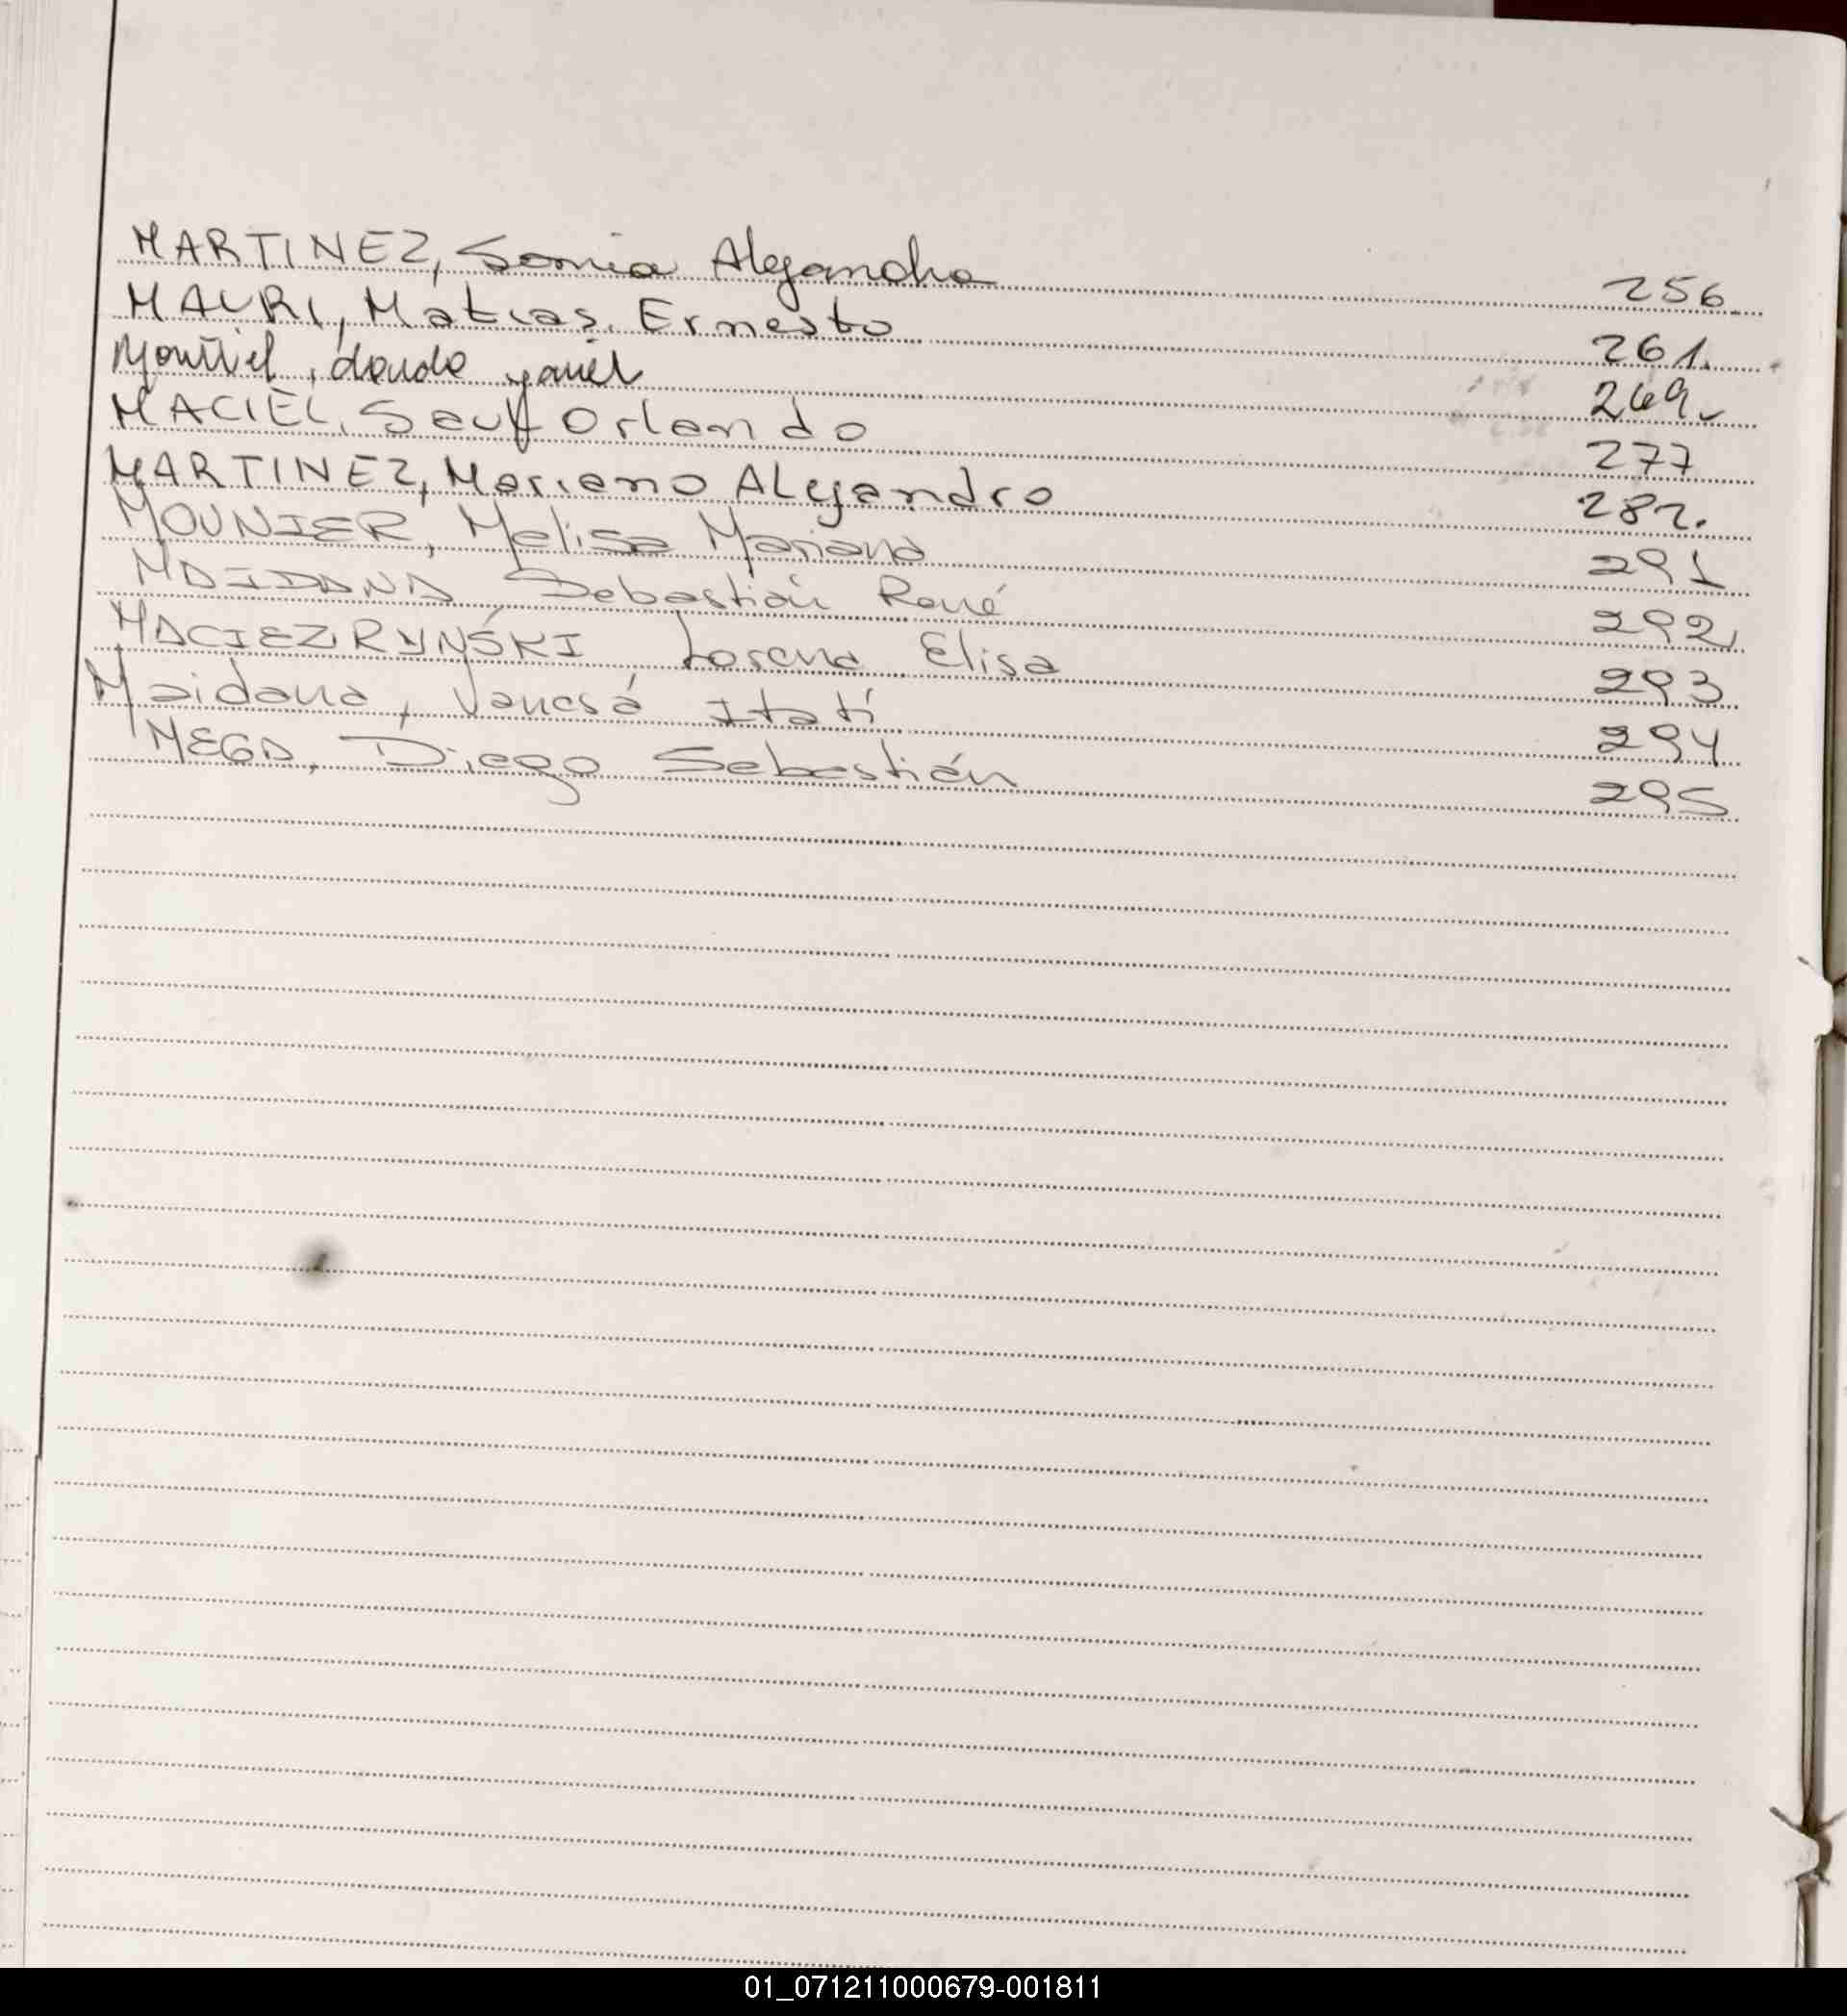 MARTINEZ, Sonia Alejandra 256
MAURI, Matias Ernesto 261.
Montiel, yanel 269
MACIEL, Saul Orlando 277
MARTINEZ, Mariano ALejandro 282.
MOUNIER, Melisa Mariana 291
MAIDANA, Sebastián René 292
MACIEZRYNŚKI Lorena Elisa 293
Maidana, Vanesá Itatí 294
MEGA, Diego Sebastián 295
01_071211000679-001811